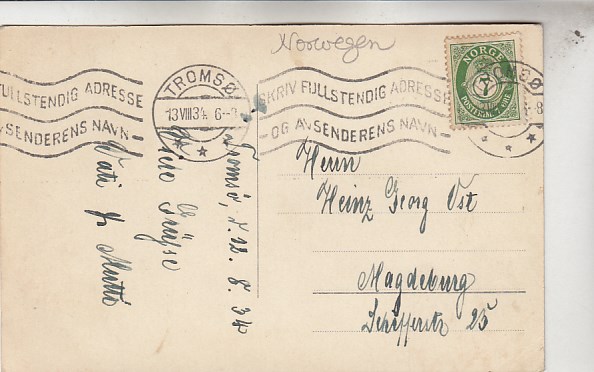 Norwegen
NORGE
7
POSTFRIM. 7 ØRE
TROMSØ
13 VIII 34 6-
FULLSTENDIG ADRESSE
AVSENDERENS NAVN
SKRIV FULLSTENDIG ADRESSE
OG AVSENDERENS NAVN
TROMSØ
Tromsö, d. 12. 8. 34
Viele Grüsse
Vati & Mutti
Herrn
Heinz Georg Ost
Magdeburg
25